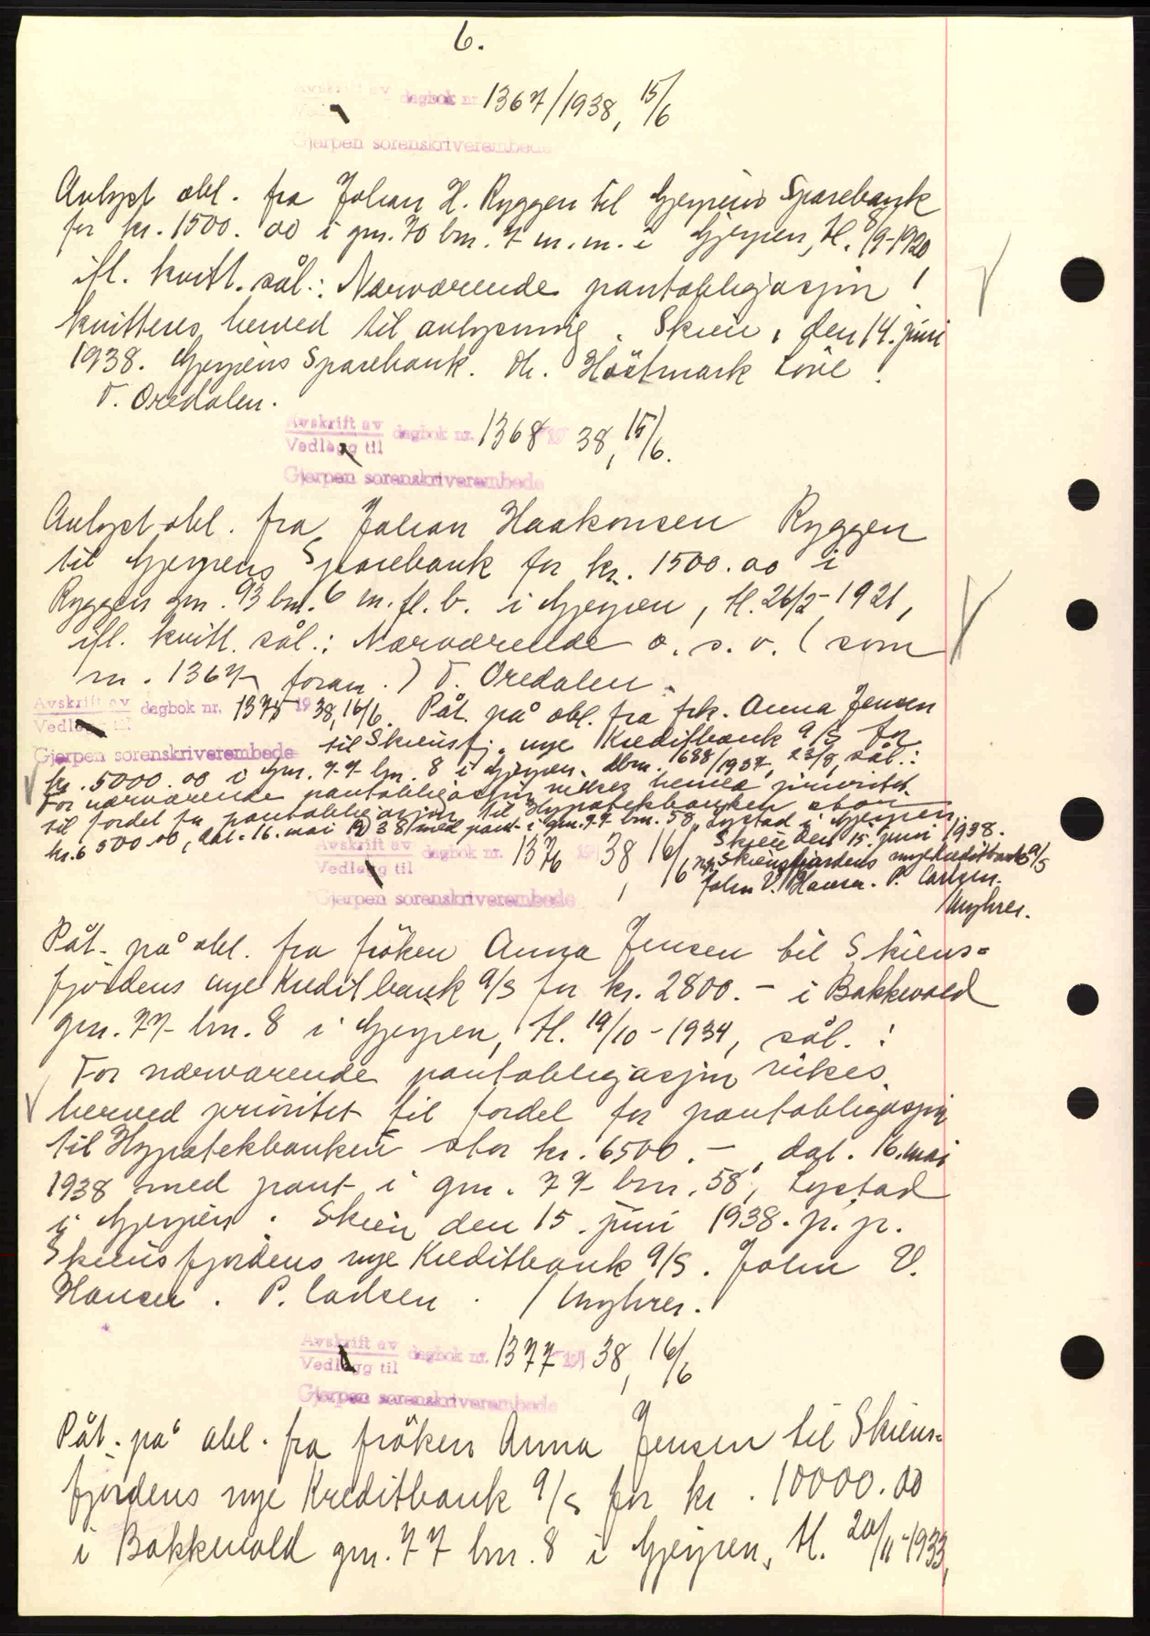 6.
Avskrift av
Vedlegg til dagbok nr. 1367/1938, 15/6
Gjerpen sorenskriverembede
Avlyst obl. fra Johan H. Ryggen til Gjerpens Sparebank
for kr. 1500.00 i gnr. 70 bnr. 7 m.m. i Gjerpen, tl. 8/9-1920,
ifl. kvitt. sål.: Nærværende pantobligasjon
kvitteres herved til avlysning. Skien, den 14. juni
1938. Gjerpens Sparebank. H. Høstmark Love.
T. Oredalen.
Avskrift av
Vedlegg til dagbok nr. 1368 19 38, 15/6.
Gjerpen sorenskriverembede
Avlyst obl. fra Johan Haakonsen Ryggen
til Gjerpens Sparebank for kr. 1500.00 i
Ryggen gnr. 93 bnr. 6 m.fl.b. i Gjerpen, tl. 26/2-1921,
ifl. kvitt. sål.: Nærværende o.s.v. (som
nr. 1367 foran.) T. Oredalen.
Avskrift av
Vedlegg til dagbok nr. 1375 19 38, 16/6. Påt. på obl. fra frk. Anna Jensen
Gjerpen sorenskriverembede til Skiensfj. nye Kreditbank a/s for
kr. 5000.00 i gnr. 77 bnr. 8 i Gjerpen, dbnr. 1688/1937, sål.:
For nærværende pantobligasjon vikes herved prioritet
til fordel for pantobligasjon til Hypotekbanken stor
kr. 6500.00, dat. 16. mai 1938 med pant i gnr. 77 bnr. 58, Lystad i Gjerpen.
Skien den 15. juni 1938.
Avskrift av
Vedlegg til dagbok nr. 1376 19 38, 16/6
Gjerpen sorenskriverembede
pp Skiensfjordens nye Kreditbank a/s
John V. Hansen. P. Carlsen.
/Myhres.
Påt. på obl. fra frøken Anna Jensen til Skiens-
fjordens nye Kreditbank a/s for kr. 2800.- i Bakkevold
gnr. 77 bnr. 8 i Gjerpen, tl. 19/10-1934, sål.:
For nærværende pantobligasjon vikes
herved prioritet til fordel for pantobligasjon
til Hypotekbanken stor kr. 6500.-, dat. 16. mai
1938 med pant i gnr. 77 bnr. 58, Lystad
i Gjerpen. Skien den 15. juni 1938. p.p.
Skiensfjordens nye Kreditbank a/s. John V.
Hansen. P. Carlsen. /Myhres.
Avskrift av
Vedlegg til dagbok nr. 1377 19 38, 16/6
Gjerpen sorenskriverembede
Påt. på obl. fra frøken Anna Jensen til Skiens-
fjordens nye Kreditbank a/s for kr. 10000.00
i Bakkevold gnr. 77 bnr. 8 i Gjerpen, tl. 20/11-1933,